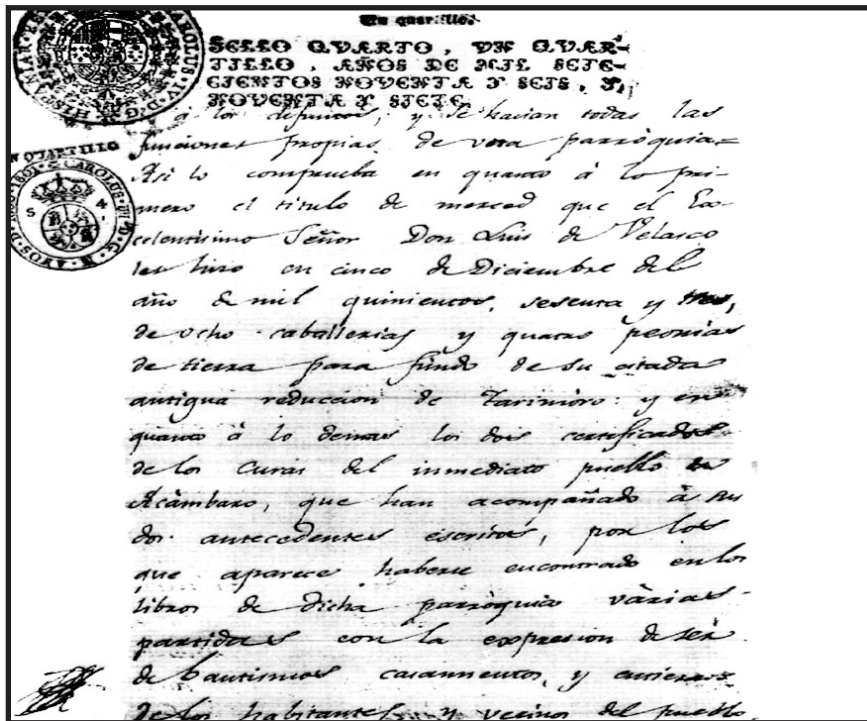 Un quartillo.
SELLO QVARTO, VN QVAR-
TILLO, AÑOS DE MIL SETE-
CIENTOS NOVENTA Y SEIS, Y
NOVENTA Y SIETE.
CAROLUS IV D.G. HISP
N QUARTILLO
CAROLUS
à los difuntos, y se hacian todas las
funciones propias de una parròquia=
Asi lo comprueba en quanto à lo pri-
mero el titulo de merced que el Ex-
celentisimo Señor Don Luis de Velasco
les hizo en cinco de Diciembre del
año de mil quinientos, sesenta y tres,
de ocho caballerias y quatro peonias
de tierra para fundo de su citada
antigua reduccion de Tarimoro: y en
quanto à lo demas los dos certificados
de los Curas del inmediato pueblo de
Acàmbaro, que han acompañado à sus
dos antecedentes escritos, por los
que aparece haberse encontrado en los
libros de dicha parròquia vàrias
partidas con la expresion de ser
de bautismos casamientos, y entierros
de los habitantes y vecinos del pueblo